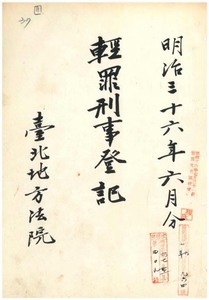 明治三十六年六月分
輕罪刑事登記
臺北地方法院